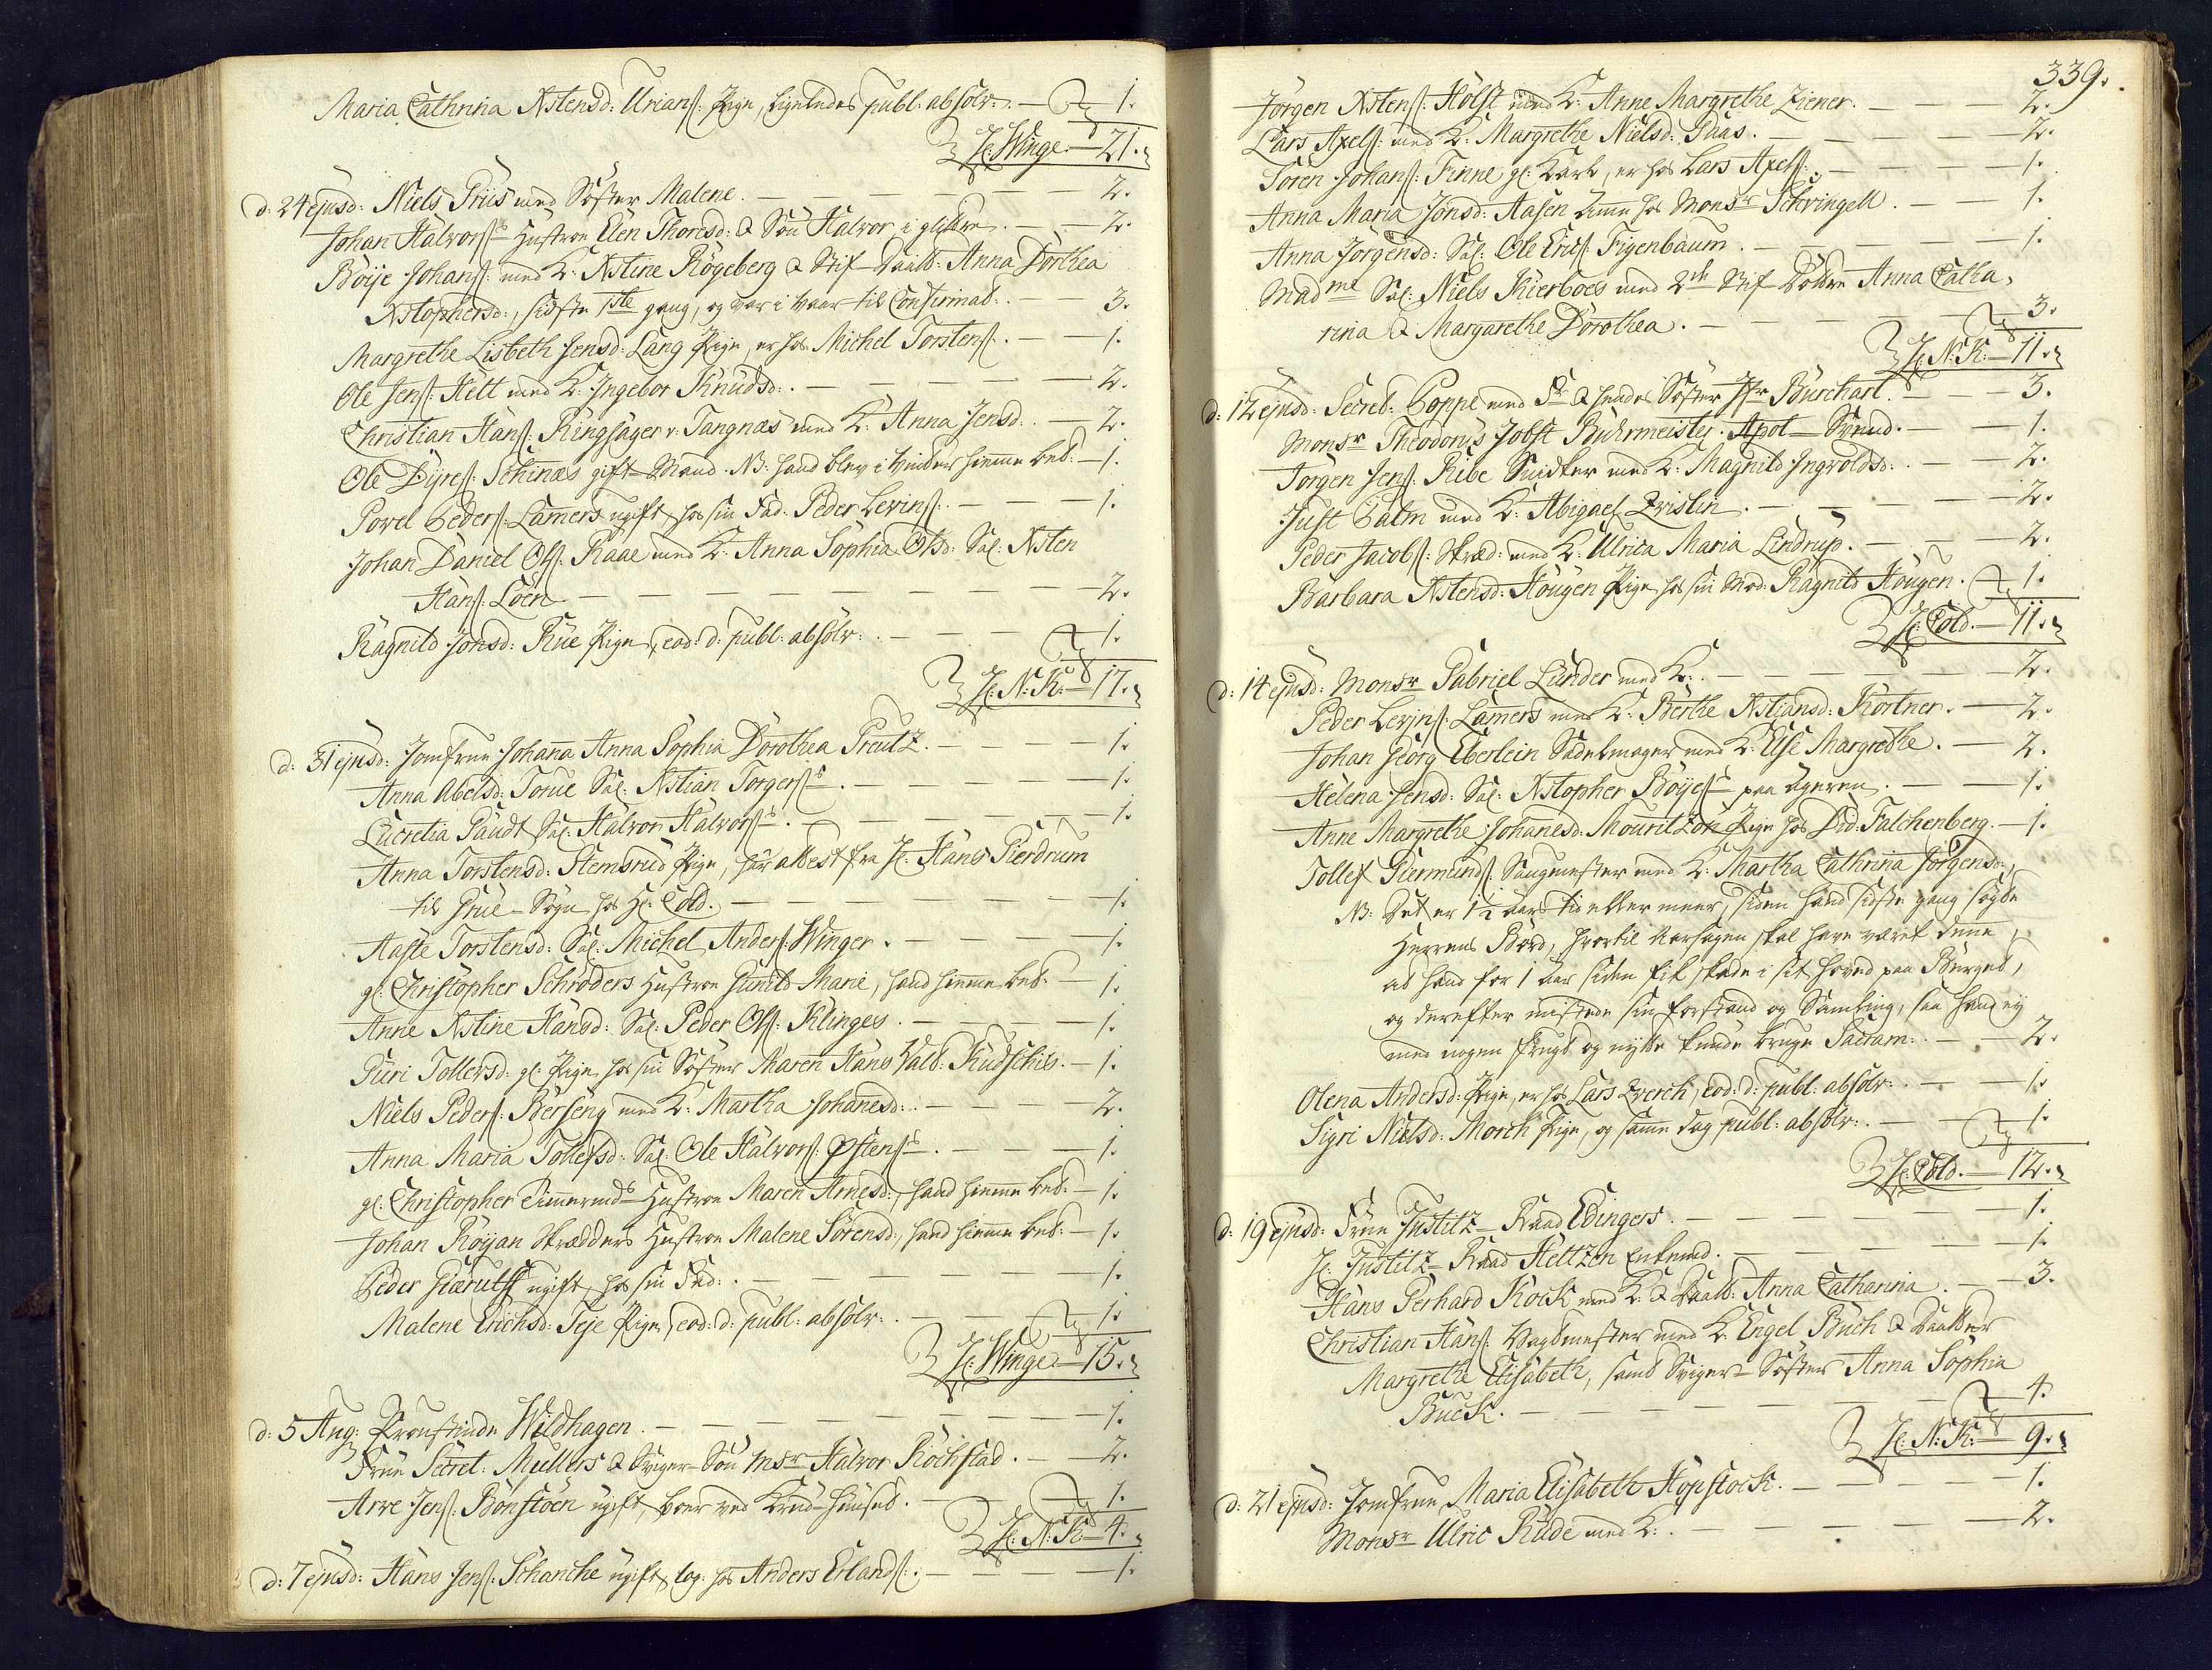 Maria Cathrina Xstensd: Urians: Pige, ligeledes publ. absolv: — 1.
H: Winge. — 21.
d: 24 ejusd: Niels Friis med Søster Malene. — 2.
Johan Halvors: Hustroe Elen Thoresd: & Søn Halvor i — 2.
Böije Johans: med K: Xstine Rögeberg & Stif-Daatt: Anna Dorthea
Xstophersd:, sidste 1ste gang, og var i Vaar til Confirmat: — 3.
Margrethe Lisbeth Jensd: Lang Pige, er hos Michel Torstens: — 1.
Ole Jens: Helt med K: Ingebor Knudsd: — 2.
Christian Hans: Ringsager v: Tangnæs med K: Anna Jensd: — 2.
Ole Dyres: Schinæs gift Mand. NB: hand blev i hiemme bet: — 1.
Povel Peders: Lamers ugift, hos sin Fad: Peder Levins: — 1.
Johan Daniel Ols: Raae med K: Anna Sophia Olsd: Sal: Xsten
Hans: Löen — 2.
Ragnild Jonsd: Rue Pige, eod: d: publ: absolv: — 1.
H: N: K: — 17.
d: 31 ejusd: Jomfrue Johanna Anna Sophia Dorothea Preutz. — 1.
Anna Abelsd: Torue Sal: Xstian Torgers: — 1.
Lucretia Paudt Sal: Halvor Halvors: — 1.
Anna Torstensd: Stemsrud Pige, har attest fra H: Hans Gierdrum
til Grue-Sogn hos Hr: Cold. — 1.
Aaste Torstensd: Sal: Michel Anders: Winger. — 1.
gl: Christopher Schrøders Hustroe Gunild Marie, hand hiemme bet: — 1.
Anne Xstine Hansd: Sal: Peder Ols: Klinges. — 1.
Guri Tollevsd: gl: Pige, hos sin Søster Maren Hans Rudschis. — 1.
Niels Peders: Berseng med K: Martha Johanesd: — 2.
Anna Maria Tollefsd: Sal: Ole Halvors: Østens: — 1.
gl: Christopher Timermds Hustroe Maren Arnesd:, hand hiemme bet: — 1.
Johan Röyan Skrædders Hustroe Malene Sørensd:, hand hiemme bet: — 1.
Peder ugift, hos sin Fad: — 1.
Malene Erichsd: Teje Pige, eod: d: publ: absolv: — 1.
H: Winge — 15.
d: 5 Aug: Provstinde Wildhagen. — 1.
Frue Secret: Mullers & Sviger-Søn Msr Halvor Rochstad. — 2.
Arve Jens: Bonstöen ugift, boer ved Krud-huuset. — 1.
H: N: K: — 4.
d: 7 ejusd: Hans Jens: Schanche ugift, log: hos Anders Erlands: — 1.
339.
Jörgen Xstens: Holst med K: Anne Margrethe Ziener. — 2.
Lars Axels: med K: Margrethe Nielsd: Paas. — 2.
Sören Johans: Finne gl: Karl, er hos Lars Axels: — 1.
Anna Maria Jonsd: Aasen Amme hos Monsr Schringell. — 1.
Anna Jörgensd: Sal: Ole Erics: Figenbaum. — 1.
Madme Sal: Niels Kierboes med 2de Stif Döttre Anna Catha-
rina & Margarethe Dorothea. — 3.
H: N: K: — 11.
d: 12 ejusd: Secret: Poppe med Fr & hendes Søster Jfr Burchart. — 3.
Monsr Theodorus Jobst Buhrmeister Apot-Svend. — 1.
Jörgen Jens: Ribe Snidker med K: Magnild Ingvoldsd: — 2.
Just Palm med K: Abigael Zvislin. — 2.
Peder Jacobs: Skræd: med K: Ulrica Maria Lindrup. — 2.
Barbara Xstensd: Hougen Pige, hos sin Mod: Ragnild Hougen. — 1.
H: Cold. — 11.
d: 14 ejusd: Monsr Gabriel Lunder med K: — 2.
Peder Levins: Lamers med K: Berthe Xstiansd: Kortner. — 2.
Johan Georg Eberlein Sadelmager med K: Else Margrethe. — 2.
Helena Jensd: Sal: Xstopher Böyes: paa Ageren. — 1.
Anne Margrethe Johanesd: Mouritzon Pige hos Did: Falchenberg. — 1.
Tollef Giermunds: Saugmester med K: Martha Cathrina Jørgensd:,
NB: Det er 1½ aars tid eller meer, siden hand sidste gang søgte
Herrens Bord, hvortil Aarsagen skal have været denne,
at hand for 1 aar siden fik skade i sit hoved paa Berget,
og derefter mistede sin forstand og Samling, saa hand ej
med nogen frugt og nytte kunde bruge Sacram: — 2.
Olena Andersd: Pige, er hos Lars Zverck, eod: d: publ: absolv: — 1.
Sigri Nielsd: Morch Pige, og samme dag publ: absolv: — 1.
H: Cold. — 12.
d: 19 ejusd: Frue Justitz-Raad Edingers. — 1.
H: Justitz-Raad Heltzen Enkemd. — 1.
Hans Gerhard Kock med K: & Daatt: Anna Catharina. — 3.
Christian Hans: Vagtmester med K: Engel Buch & Daatter
Margrethe Elisabeth, samt Sviger-Søster Anna Sophia
Buch. — 4.
H: N: K: — 9.
d: 21 ejusd: Jomfrue Maria Elisabeth Hopstock. — 1.
Monsr Ulric Rude med K: — 2.